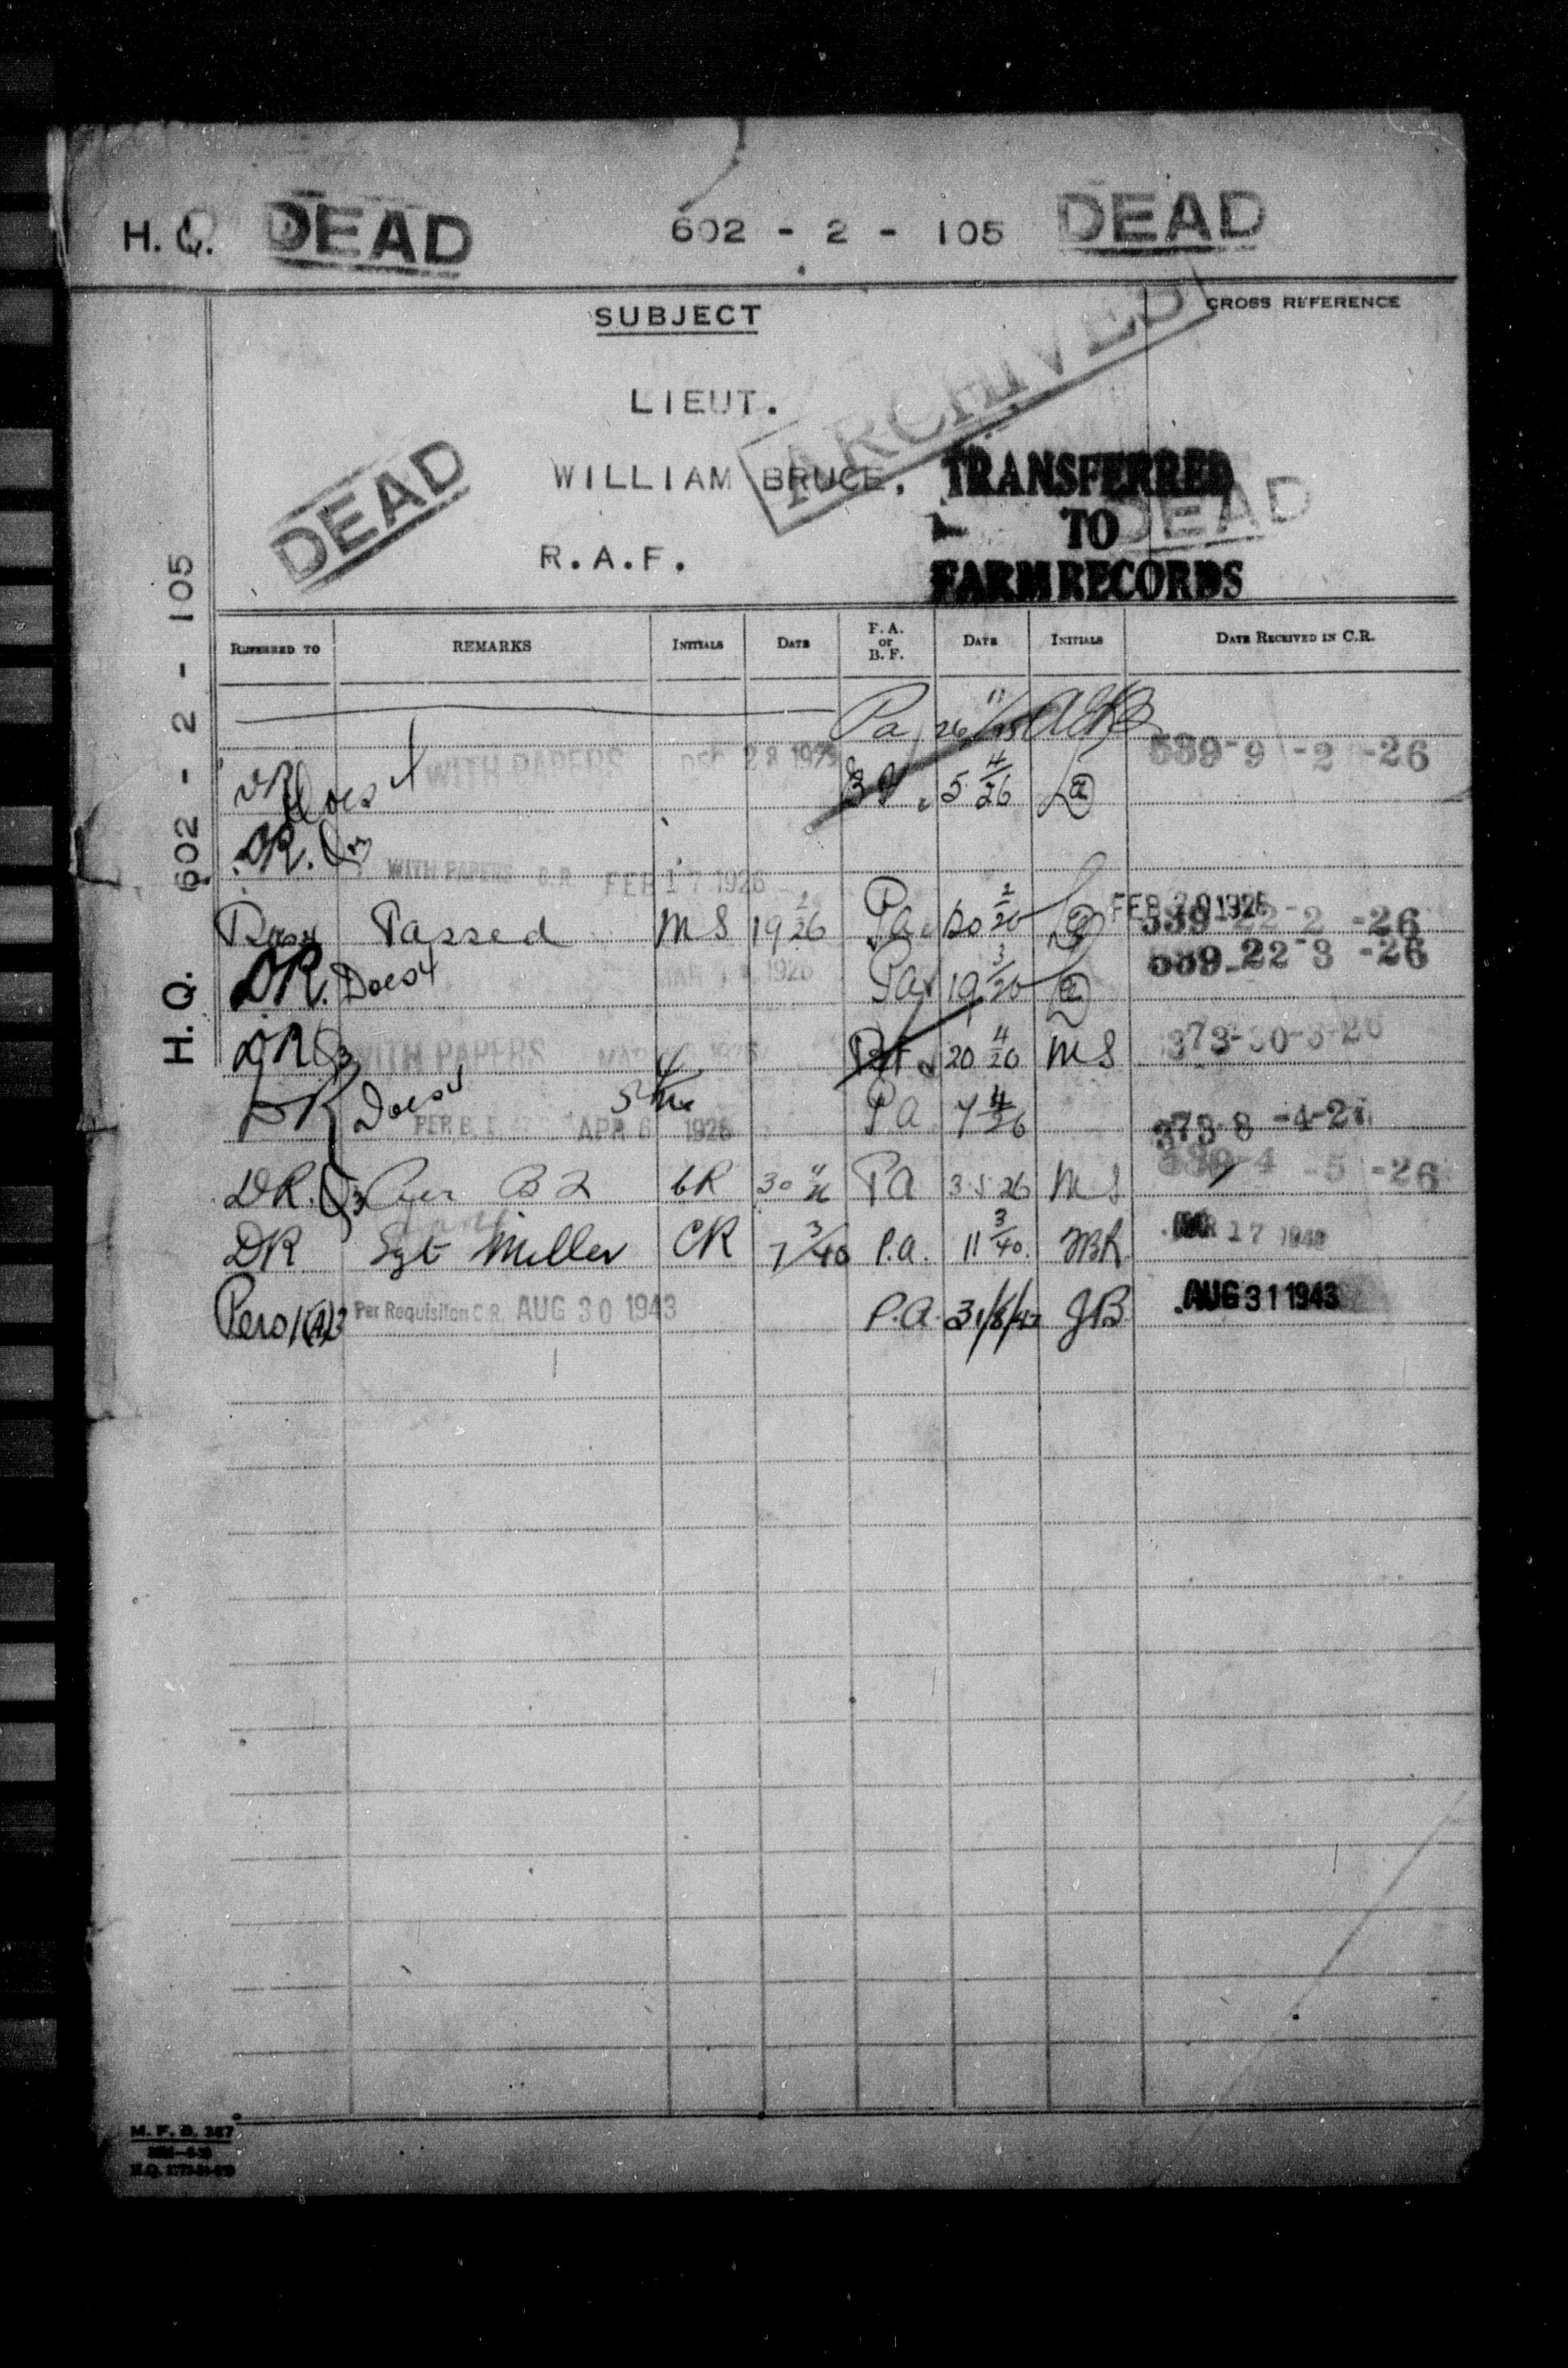 H. Q. DEAD 602 - 2 - 105 DEAD
SUBJECT
CROSS REFERENCE
LIEUT.
ARCHIVED
WILLIAM BRUCE,
R.A.F.
DEAD
TRANSFERRED
TO
DEAD
FARM RECORDS
H.Q. 602 - 2 - 105
REFERRED TO REMARKS INITIALS DATE F. A. or B. F. DATE INITIALS DATE RECEIVED IN C.R.
Pa 26/11/25
WITH PAPERS DEC 28 1925 5 4/26 539-9 -2 -26
DR.
WITH PAPERS FEB 17 1926
Passed MS 19 2/26 Pa 20 2/26 FEB 20 1926 539-22-2 -26
DR. Docs 4 Pa 19 3/26 539-22-3 -26
DR Q3 WITH PAPERS 20 4/26 MS 373-30-3-26
DR Docs 4 PER B.F. APR 6 1926 PA 7 4/26 373-8 -4-26
DR. Q3 Per B 2 30 4/26 PA 3 5 26 MS 539-4 -5 -26
DR Sgt Miller CR 7 3/40 P.A. 11 3/40. MAR 17 1940
Per Requisiton C.R. AUG 30 1943 P.A. 31/8/43 JB AUG 31 1943
M. F. B. 267